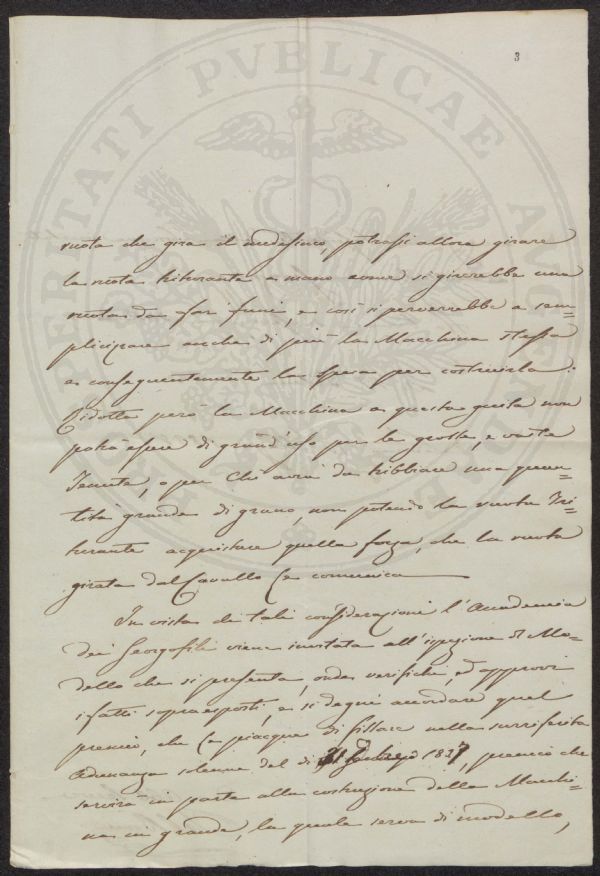 3
ruota che gira il medesimo, potrassi allora girare
la ruota triturante a mano come si girerebbe una
ruota da far funi, e così si perverrebbe a sem=
plicizzare anche di più la Macchina stessa
e conseguentemente la spesa per costruirla.
Ridotta però la Macchina a questa guisa non
potrà essere di grand'uso per le grosse, e vaste
Tenute, o per chi avrà da tribbiare una quan=
tità grande di grano, non potendo la ruota Tri=
turante acquistare quella forza, che la ruota
girata dal Cavallo le comunica
In vista di tali considerazioni l'Accademia
dei Georgofili viene invitata all'ispezione del Mo=
dello che si presenta, onde verifichi, ed approvi
i fatti sopraesposti, e si degni accordare quel
premio, che le piacque di fissare nella surriferita
Adunanza solenne del dì 1827, premio che
servirà in parte alla costruzione della Macchi=
na in grande, la quale serva di modello,
PROSPERITATI PVBLICAE AVGENDAE